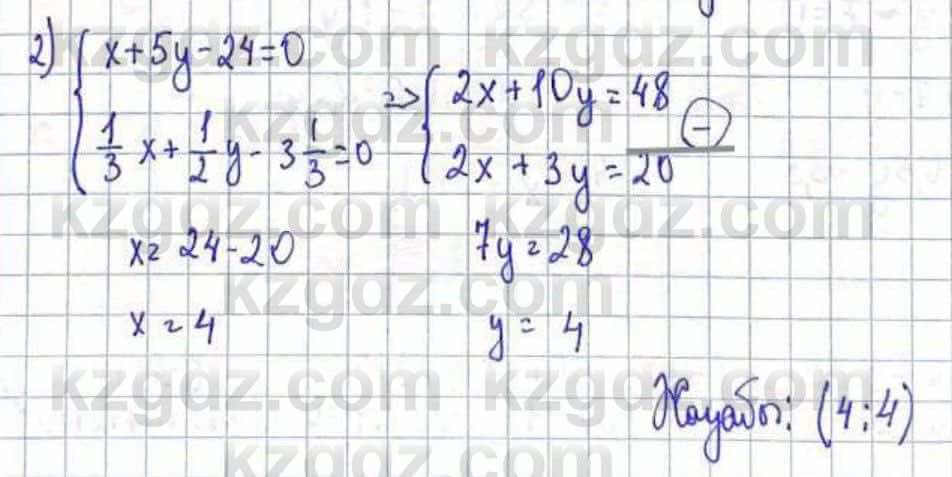 2) { x+5y-24=0
1/3 x + 1/2 y - 3 1/3 = 0
=> { 2x+10y=48
2x+3y=20
⊖
x=24-20
7y=28
x=4
y=4
Жауабы: (4;4)
kzgdz.com kzgdz.com
kzgdz.com
kzgdz.com kzgdz.com
kzgdz.com
kzgdz.com kzgdz.com
kzgdz.com